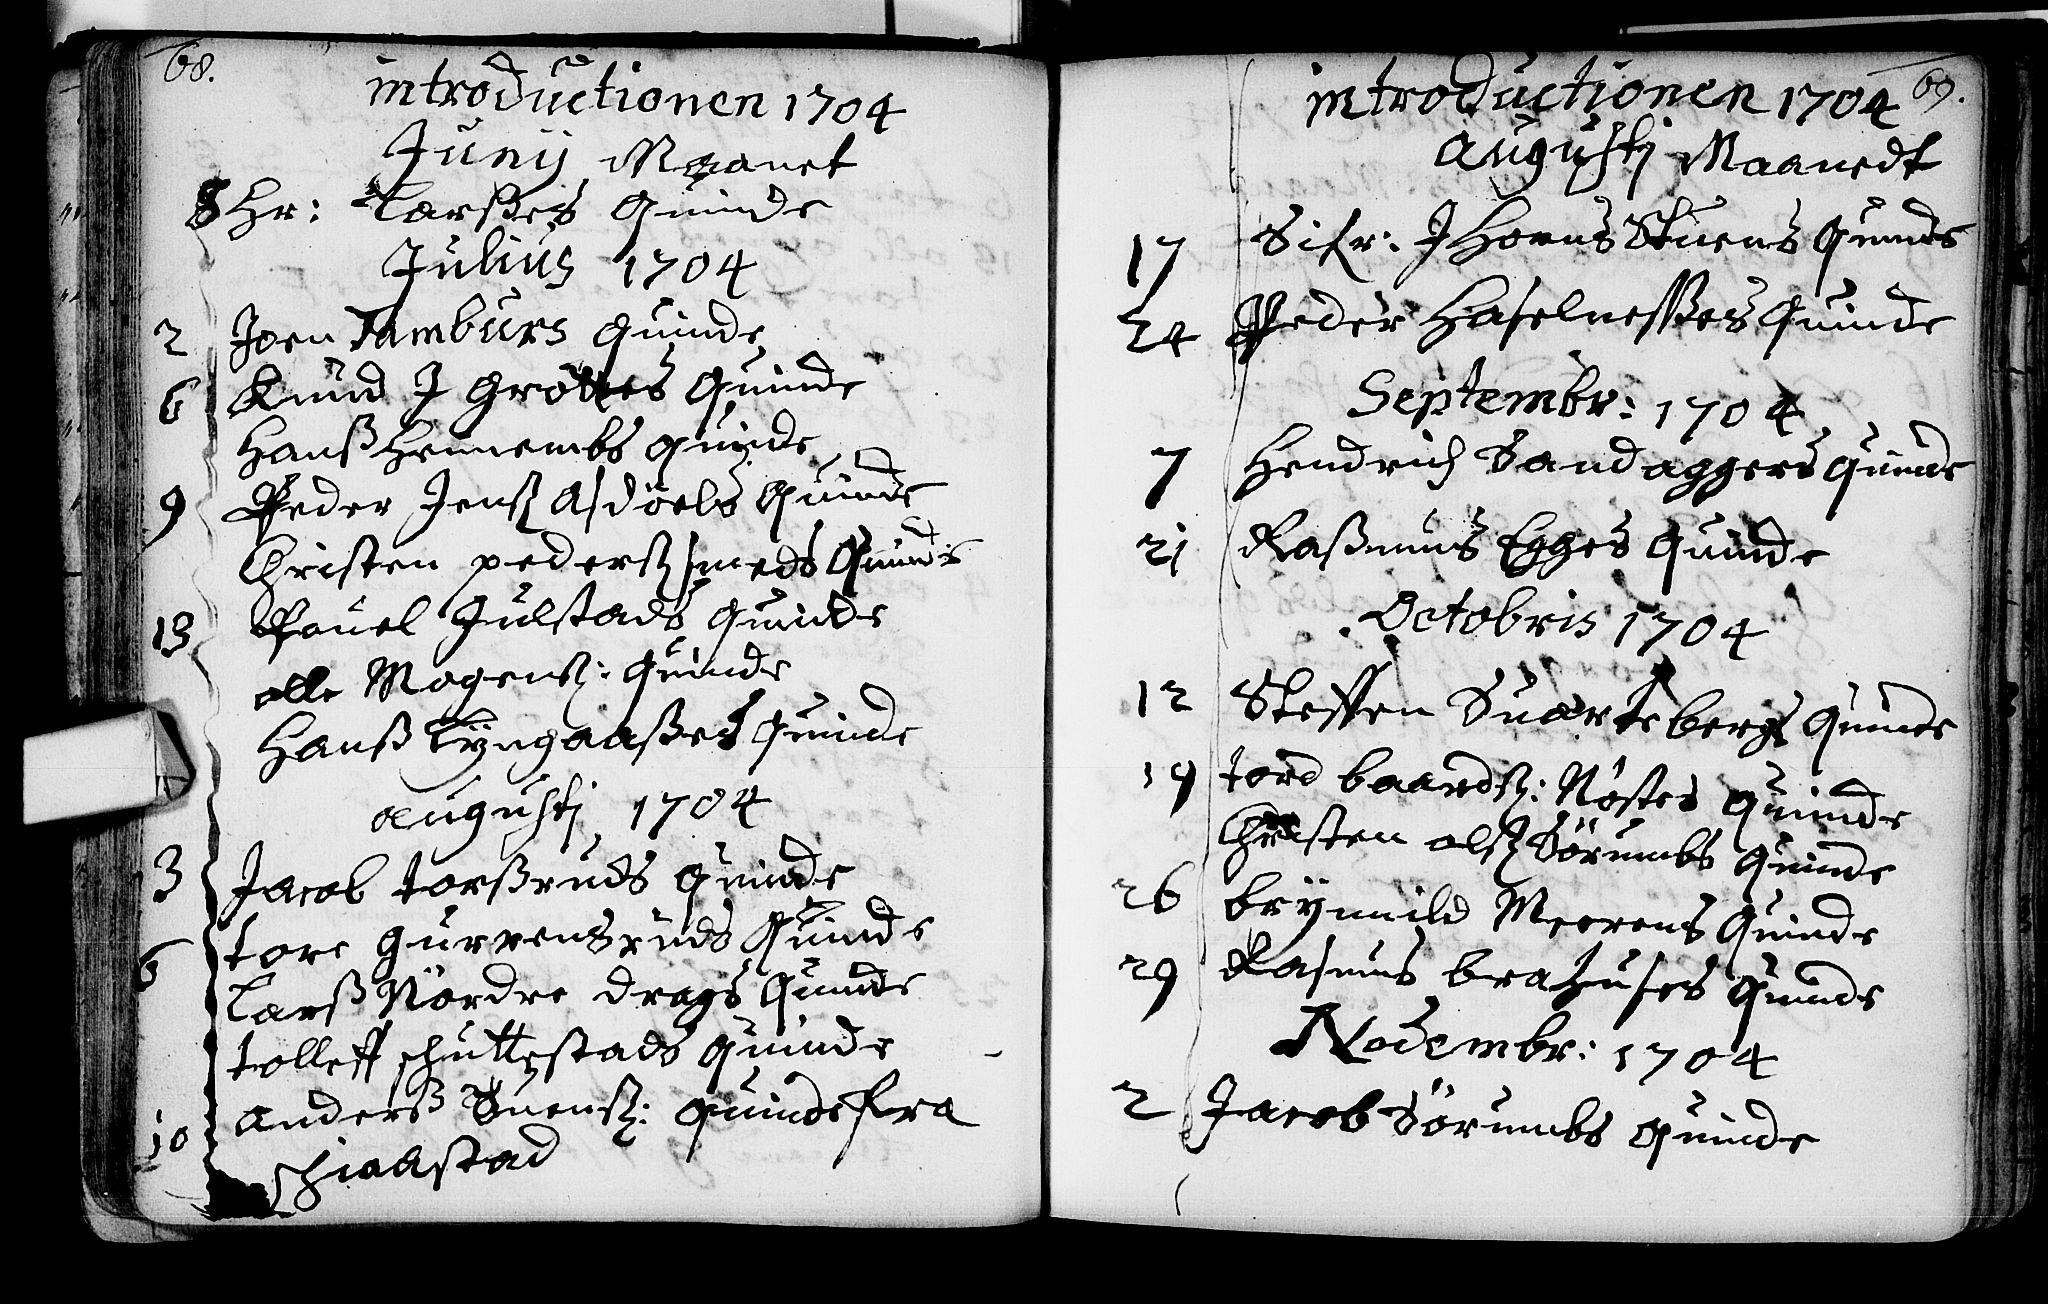 68.
introductionen 1704
Junij Maanet
8 Hr: Larßes Quinde
Julius 1704
2 Joen Tamburs Quinde
6 Knud J Grottes Quinde
Hanß Hennembs Quinde
9 Peder Jenß Asdöels Quinde
Christen pederß smeds Quinde
13 Pouel Julstads Quinde
olle Mogenß: Quinde
Hanß Lyngaaßes Quinde
augustj 1704
3 Jacob torßruds Quinde
tore Gurrensruds Quinde
6 Larß Nordre drags Quinde
tolleff schuttestads Quinde
10 anderß Suenß: Quinde fra
schiakstad
69.
introductionen 1704
augustj Maanedt
17 Sifr: J Horns Stuens Quinde
24 Peder Haselneßes Quinde
Septembr: 1704
7 Hendrich Sandaggers Quinde
21 Raßmus Egges Quinde
Octobris 1704
12 Steffen Suartebergs Quinde
19 tord baardß: Nøstes Quinde
Christen olß Sörumbs Quinde
26 brynnild Meerens Quinde
29 Rasmus brahuses Quinde
Novembr: 1704
2 Jacob Sörumbs Quinde